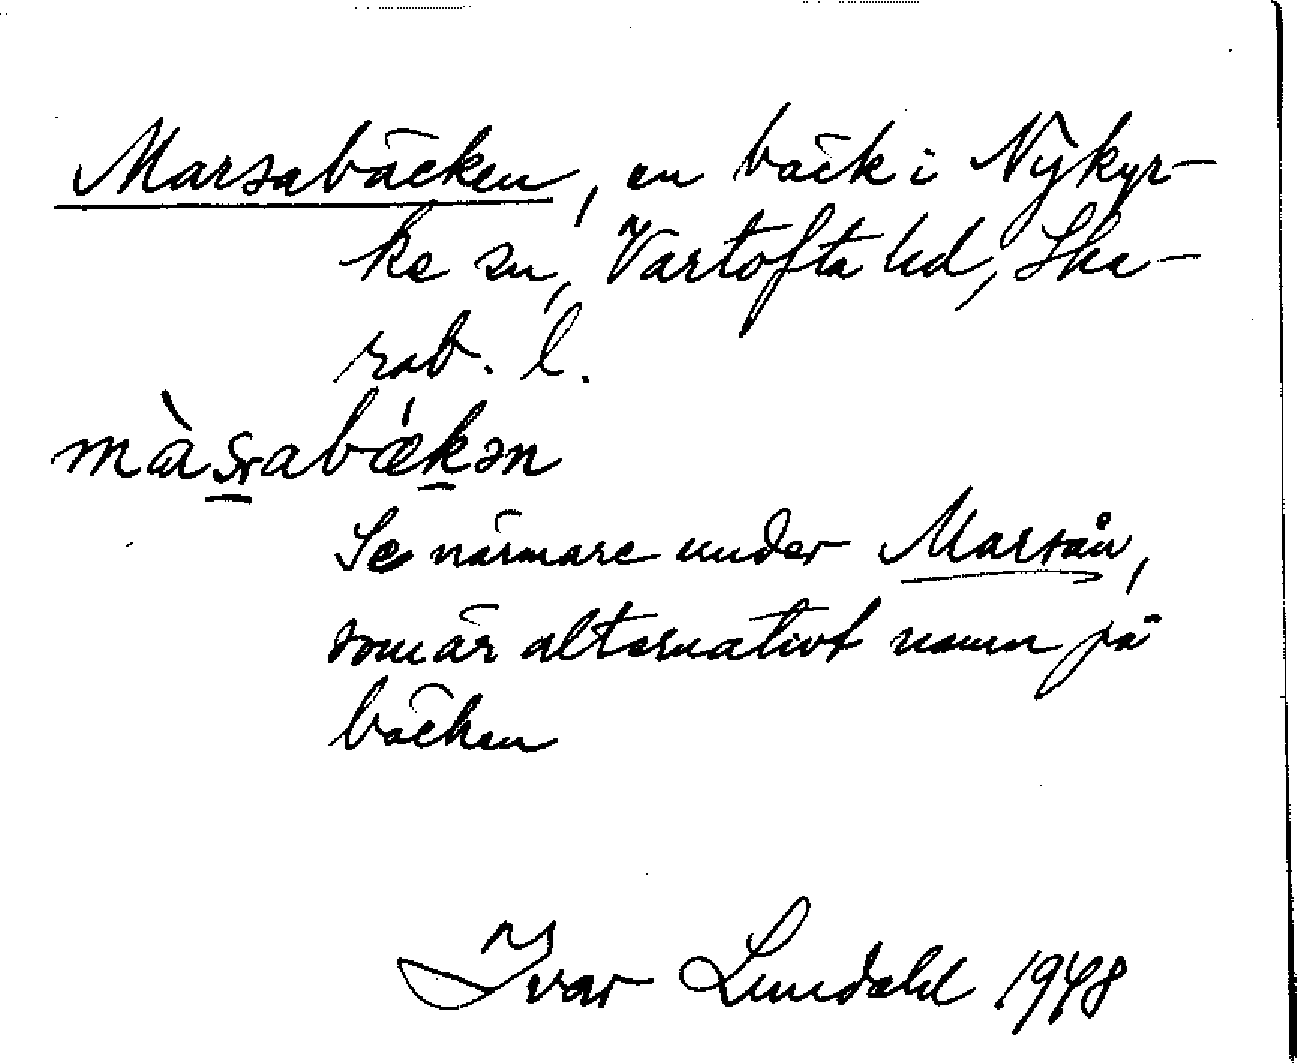 Marsabäcken, en bäck i Nykyr-
ke sn, Vartofta hd, Ska-
rab. l.
mɑ̀s̠abǽk̠ən
Se närmare under Marsån,
som är alternativt namn på
bäcken
Ivar Lundahl 1948